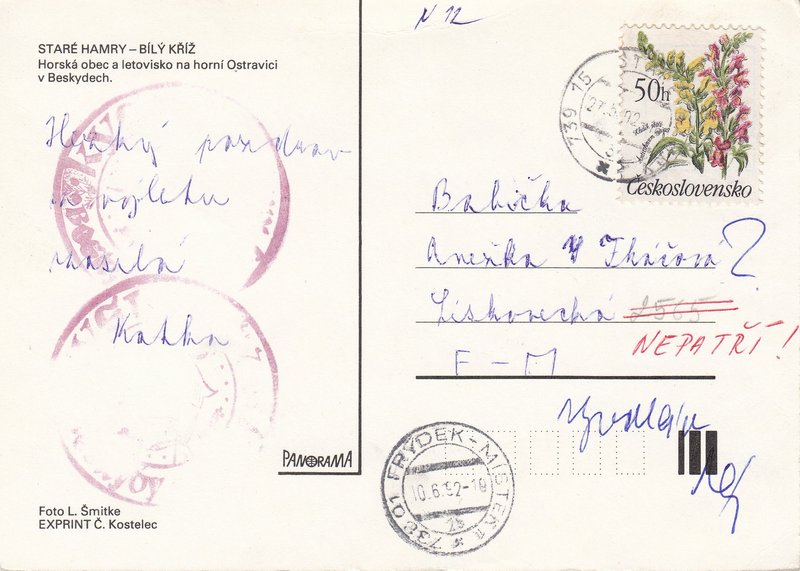 N 12
STARÉ HAMRY – BÍLÝ KŘÍŽ
Horská obec a letovisko na horní Ostravici
v Beskydech.
50h
Československo
739 15
Hezký pozdrav
z výletu
zasílá
Katka
Babička
Anežka Tkáčová ?
Lískovecká 2565
NEPATŘÍ!
F-M
PANORAMA
738 01 FRÝDEK-MÍSTEK 1
10.6.92-19
Foto L. Šmitke
EXPRINT Č. Kostelec